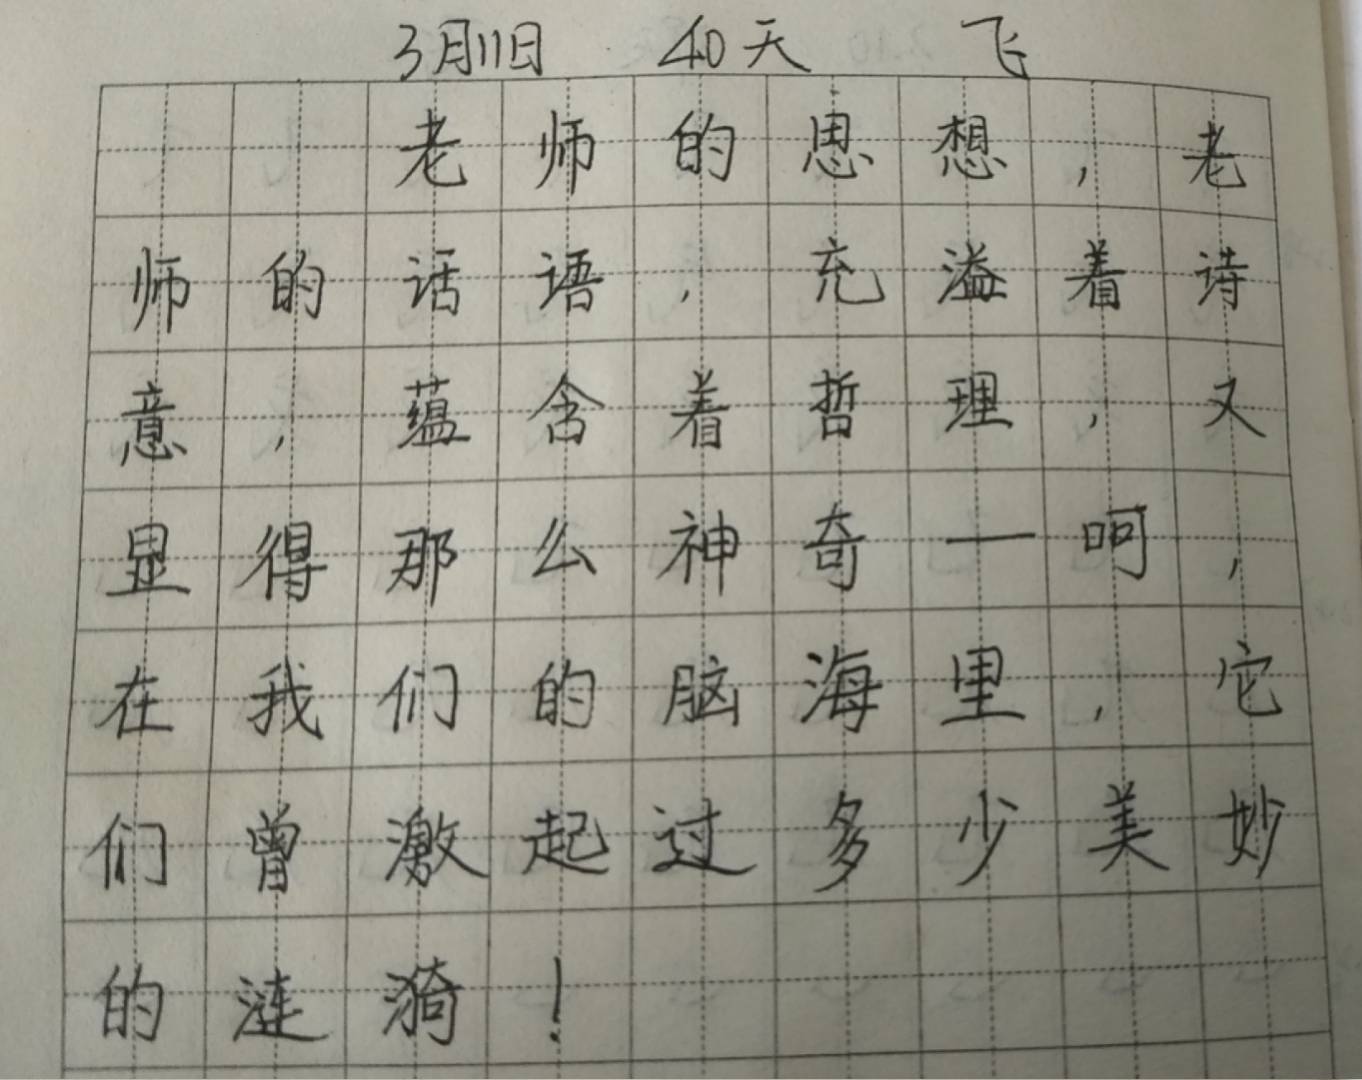 3月11日 40天 飞
老师的思想，老
师的话语，充溢着诗
意，蕴含着哲理，又
显得那么神奇一呵，
在我们的脑海里，它
们曾激起过多少美妙
的涟漪！